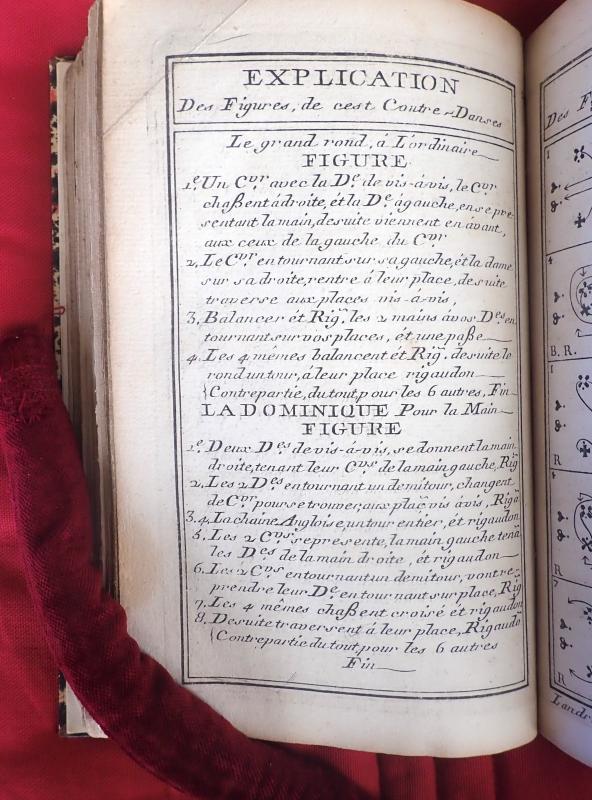 EXPLICATION
Des Figures, de cest Contre-Danses
Le grand rond, á L'ordinaire
FIGURE
1.e Un C.vr avec la D.e de vis-á-vis, le C.vr
chaßent á droite, ét la D.e á gauche, en se pre-
sentant la main, desuite viennent en avant,
aux ceux de la gauche du C.vr
2, Le C.vr en tournant sur sa gauche, ét la dame
sur sa droite, rentre á leur place, desuite
traverse aux places vis-á-vis,
3, Balancer ét Rig.n les 2 mains á vos D.es en
tournant sur vos places, ét une paße
4, Les 4 mêmes balancent ét Rig.n desuite le
rond un tour, á leur place rigaudon
{Contrepartie, du tout, pour les 6 autres, Fin
LA DOMINIQUE Pour la Main
FIGURE
1.e Deux D.es de vis-á-vis, se donnent la main
droite, tenant leur C.vrs de la main gauche, Rig
2, Les 2 D.es en tournant un demi tour, changent
de C.vr pour se trouver, aux plac.n vis á vis, Rig.n
3, 4, La chaine Angloise, un tour entier, ét rigaudon
5, Les 2 C.vrs se presente, la main gauche tena.n
les D.es de la main droite, ét rigaudon
6, Les 2 C.vrs en tournant un demi tour, vont re-
prendre leur D.e en tournant sur place, Rig
7, Les 4 mêmes chaßent croisé ét rigaudon
8, Desuite traversent á leur place, Rigaudo
{Contrepartie du tout, pour les 6 autres
Fin
Des F
1
4
B. R.
1
R
R
R
Landr